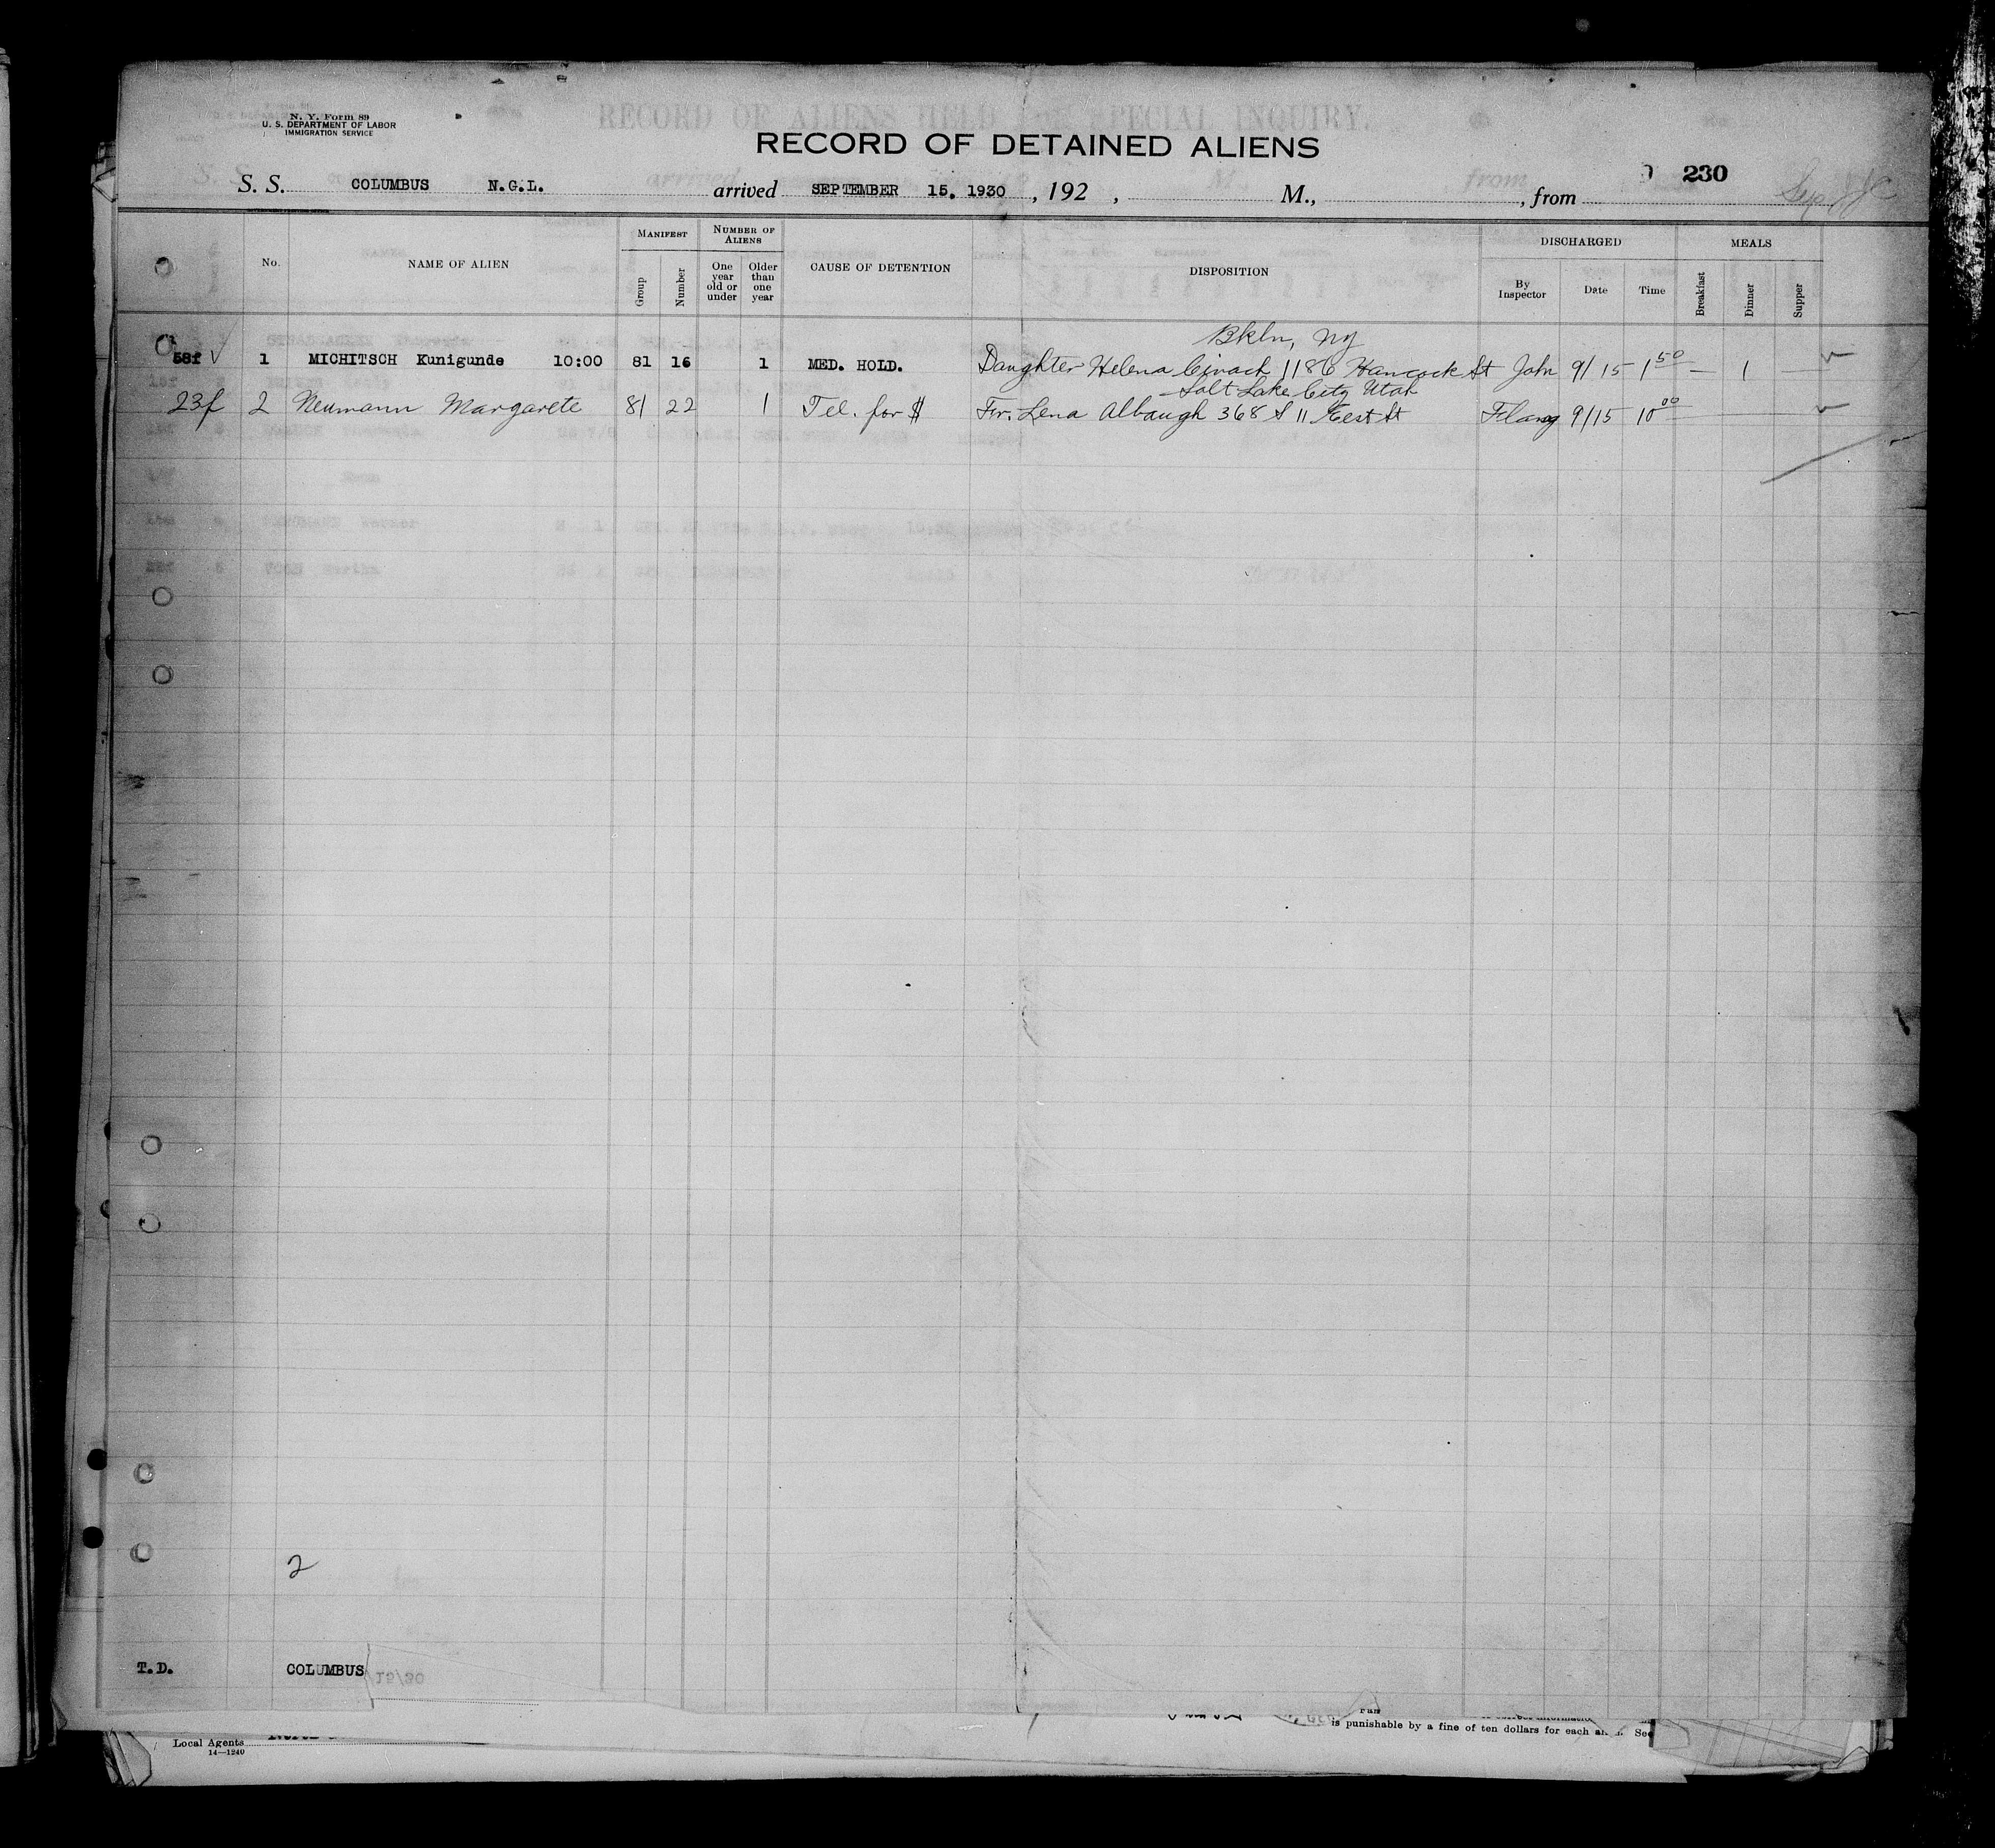 N. Y. Form 89
U. S. DEPARTMENT OF LABOR
IMMIGRATION SERVICE
RECORD OF ALIENS HELD SPECIAL INQUIRY.
RECORD OF DETAINED ALIENS
230
S. S. COLUMBUS N.G.L. arrived SEPTEMBER 15, 1930, 192 , M., , from
No. NAME OF ALIEN MANIFEST NUMBER OF ALIENS CAUSE OF DETENTION DISPOSITION DISCHARGED MEALS
Group Number One year old or under Older than one year By Inspector Date Time Breakfast Dinner Supper
Bkln, NY
58f √ 1 MICHITSCH Kunigunde 10:00 81 16 1 MED. HOLD. Daughter Helena 1186 Hancock St John 9/15 1 50 — 1 —
Salt Lake City Utah
23f 2 Neumann Margarete 81 22 1 Tel. for $ Fr. Lena Albaugh 368 S 11 East St 9/15 10 00
2
T.D. COLUMBUS
/15/30
is punishable by a fine of ten dollars for each See
Local Agents
14—1240